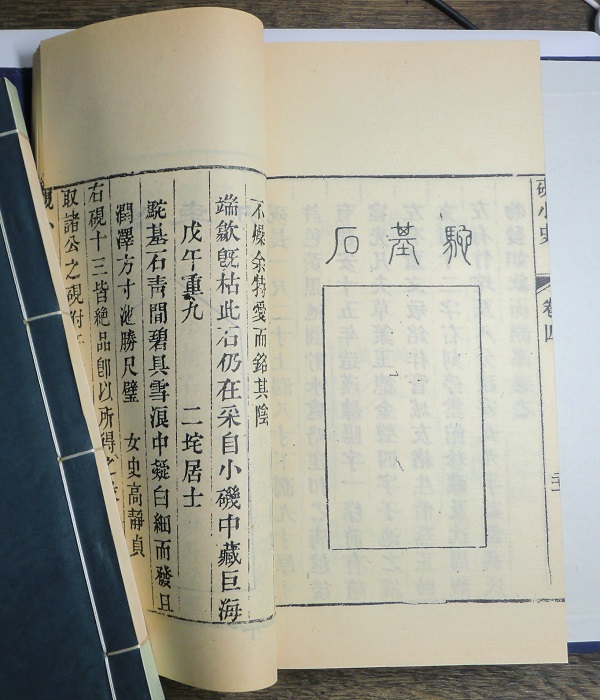 硯小史 卷四
駝基石
不燥余特愛而銘其陰
端歙旣枯此石仍在采自小磯中藏巨海
戊午重九 二垞居士
駝基石靑間碧具雪浪中凝白細而發且
潤澤方寸池勝尺璧 女史高靜貞
右硯十三皆絶品卽以所得
取諸公之硯附